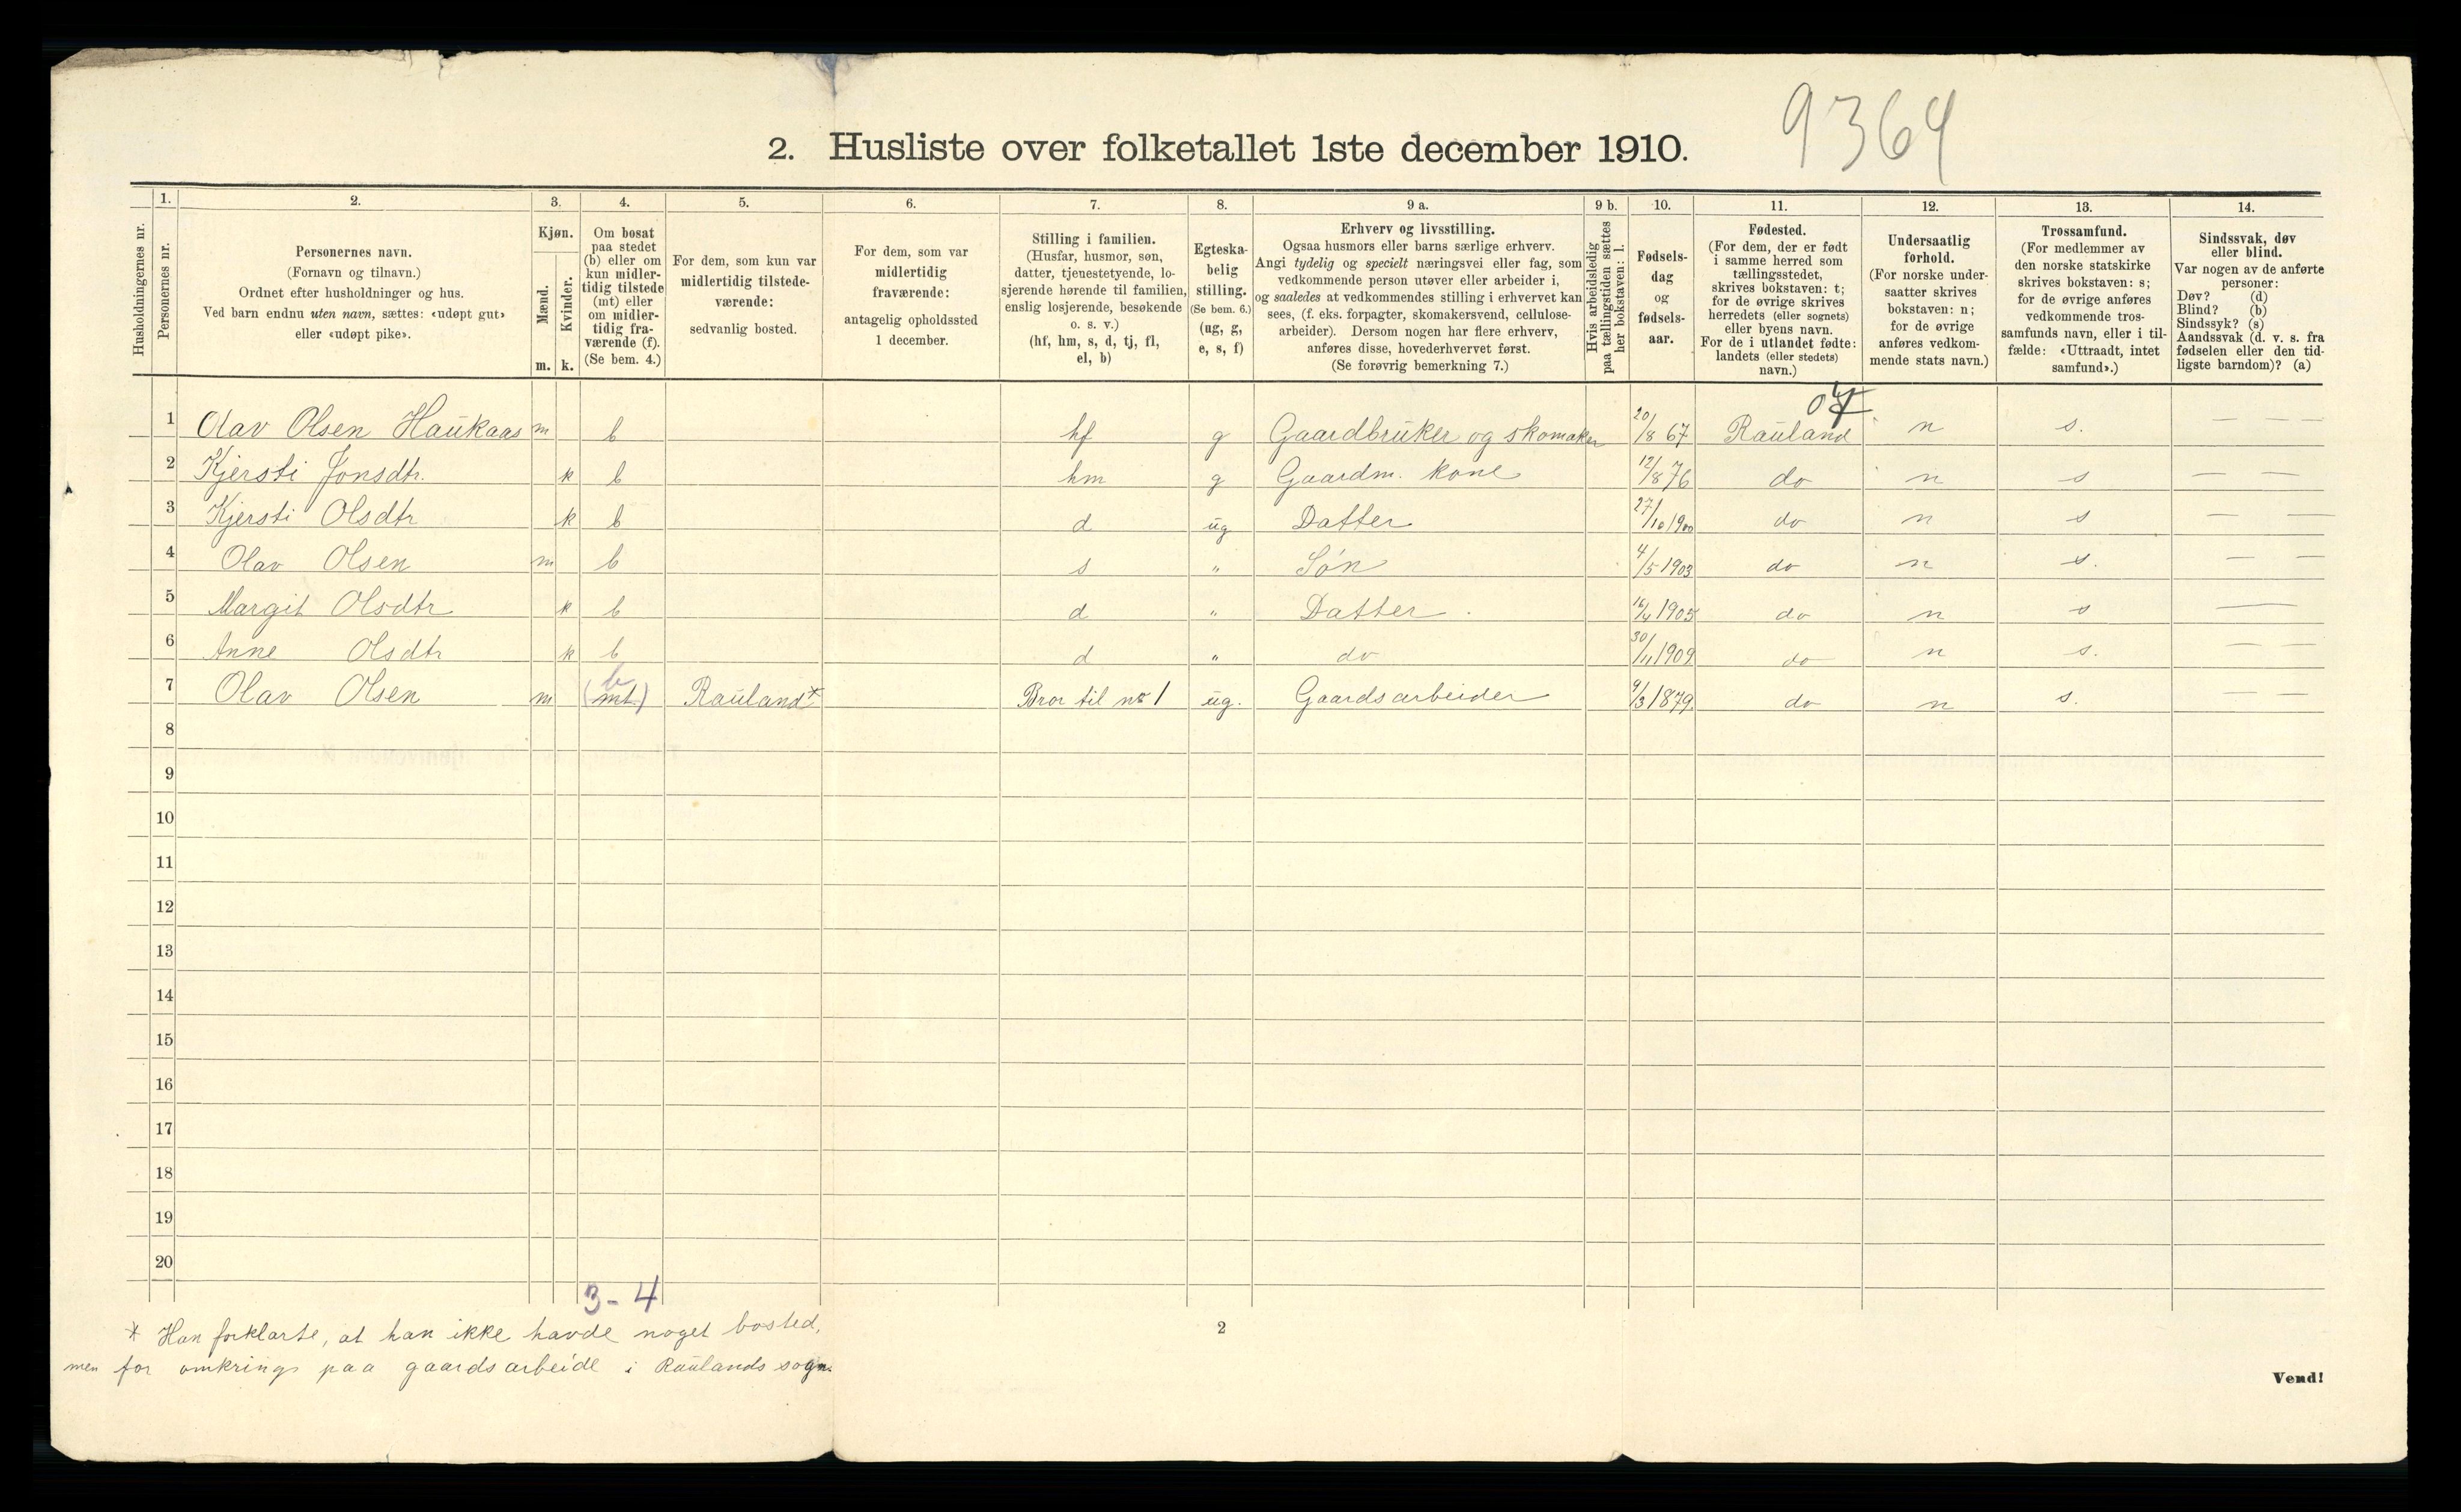 9364
2. Husliste over folketallet 1ste december 1910.
Husholdningernes nr.
1.
Personernes nr.
2.
Personernes navn.
(Fornavn og tilnavn.)
Ordnet efter husholdninger og hus.
Ved barn endnu uten navn, sættes: «udøpt gut»
eller «udøpt pike».
3.
Kjøn.
Mænd.
Kvinder.
m. k.
4.
Om bosat
paa stedet
(b) eller om
kun midler-
tidig tilstede
(mt) eller
om midler-
tidig fra-
værende (f).
(Se bem. 4.)
5.
For dem, som kun var
midlertidig tilstede-
værende:
sedvanlig bosted.
6.
For dem, som var
midlertidig
fraværende:
antagelig opholdssted
1 december.
7.
Stilling i familien.
(Husfar, husmor, søn,
datter, tjenestetyende, lo-
sjerende hørende til familien,
enslig losjerende, besøkende
o. s. v.)
(hf, hm, s, d, tj, fl,
el, b)
8.
Egteska-
belig
stilling.
(Se bem. 6.)
(ug, g,
e, s, f)
9 a.
Erhverv og livsstilling.
Ogsaa husmors eller barns særlige erhverv.
Angi tydelig og specielt næringsvei eller fag, som
vedkommende person utøver eller arbeider i,
og saaledes at vedkommendes stilling i erhvervet kan
sees, (f. eks. forpagter, skomakersvend, cellulose-
arbeider). Dersom nogen har flere erhverv,
anføres disse, hovederhvervet først.
(Se forøvrig bemerkning 7.)
9 b.
Hvis arbeidsledig
paa tællingstiden sættes
her bokstaven: l.
10.
Fødsels-
dag
og
fødsels-
aar.
11.
Fødested.
(For dem, der er født
i samme herred som
tællingsstedet,
skrives bokstaven: t;
for de øvrige skrives
herredets (eller sognets)
eller byens navn.
For de i utlandet fødte:
landets (eller stedets)
navn.)
12.
Undersaatlig
forhold.
(For norske under-
saatter skrives
bokstaven: n;
for de øvrige
anføres vedkom-
mende stats navn.)
13.
Trossamfund.
(For medlemmer av
den norske statskirke
skrives bokstaven: s;
for de øvrige anføres
vedkommende tros-
samfunds navn, eller i til-
fælde: «Uttraadt, intet
samfund».)
14.
Sindssvak, døv
eller blind.
Var nogen av de anførte
personer:
Døv? (d)
Blind? (b)
Sindssyk? (s)
Aandssvak (d. v. s. fra
fødselen eller den tid-
ligste barndom)? (a)
1 Olav Olsen Haukaas m b hf g Gaardbruker og skomaker 20/8 67 Rauland n s. — —
2 Kjersti Jonsdtr. k b hm g Gaardm. kone 12/8 76 do n s — —
3 Kjersti Olsdtr k b d ug Datter 27/10 1900 do n s — —
4 Olav Olsen m b s " Søn 4/5 1903 do n s. — —
5 Margit Olsdtr k b d " Datter. 16/4 1905 do n s —
6 Anne Olsdtr k b d " do 30/11 1909 do n s. — —
7 Olav Olsen m b (mt.) Rauland* Bror til no 1 ug. Gaardsarbeider 9/3 1879. do n s. — —
8
9
10
11
12
13
14
15
16
17
18
19
20
3-4
* Han forklarte, at han ikke havde noget bosted,
men for omkrings paa gaardsarbeide i Raulands sogn.
2
Vend!